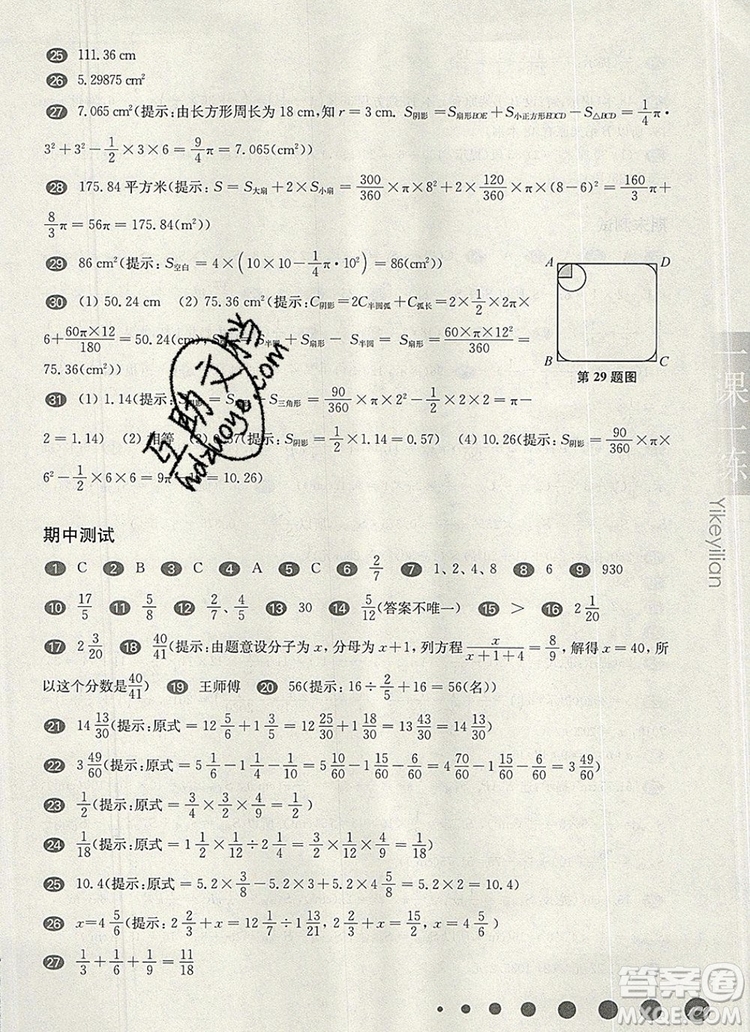 25 111.36 cm
26 5.29875 cm²
27 7.065 cm²(提示:由长方形周长为 18 cm,知 r = 3 cm. S阴影 = S扇形BOE + S小正方形BOCD − S△BCD = 1/4 π·
3² + 3² − 1/2 × 3 × 6 = 9/4 π = 7.065(cm²))
28 175.84 平方米(提示: S = S大扇 + 2 × S小扇 = 300/360 × π × 8² + 2 × 120/360 × π × (8−6)² = 160/3 π +
8/3 π = 56π = 175.84(m²))
29 86 cm²(提示: S空白 = 4 × (10 × 10 − 1/4 · π · 10²) = 86(cm²))
A D
B C
第 29 题图
30 (1) 50.24 cm (2) 75.36 cm(提示: C阴影 = 2C半圆弧 + C弧长 = 2 × 1/2 × 2π ×
6 + 60π×12/180 = 50.24(cm), S = S半圆 + S扇形 − S半圆 = S扇形 = 60×π×12²/360 =
75.36(cm))
31 (1) 1.14(提示: S = S − S三角形 = 90/360 × π × 2² − 1/2 × 2 × 2 = π −
2 = 1.14) (2) 相等 (3) 37(提示: S阴影 = (4) 10.26(提示: S阴影 = 90/360 × π ×
6² − 1/2 × 6 × 6 = 9π = 10.26)
期中测试
1 C 2 C 3 C 4 A 5 C 6 2/7 7 1、2、4、8 8 6 9 930
10 17/5 11 5/8 12 2/3、4/5 13 30 14 5/4(答案不唯一) 15 > 16 2 1/20
17 2 3/20 18 40/41(提示:由题意设分子为 x,分母为 x+1,列方程 x/(x+1+4) = 8/9,解得 x=40,所
以这个分数是 40/41) 19 王师傅 20 56(提示: 16 ÷ 2/5 + 16 = 56(名))
21 14 13/30 (提示:原式 = 12 5/6 + 1 3/5 = 12 25/30 + 1 18/30 = 13 43/30 = 14 13/30)
22 3 49/60 (提示:原式 = 5 1/6 − 1 1/4 − 1/10 = 5 10/60 − 1 15/60 − 6/60 = 4 70/60 − 1 15/60 − 6/60 = 3 49/60)
23 1/2 (提示:原式 = 3/4 × 3/2 × 4/9 = 1/2)
24 1/18 (提示:原式 = 1 1/2 × 1/12 ÷ 2 1/4 = 3/2 × 1/12 × 4/9 = 1/18)
25 10.4(提示:原式 = 5.2 × 3/8 − 5.2 × 3 + 5.2 × 4 5/8 = 5.2 × 2 = 10.4)
26 x = 4 5/6 (提示: 2 2/3 x = 12 1/2 ÷ 1 13/21, 2 2/3 x
27 1/3 + 1/6 + 1/9 = 11/18
一课一练
Yikeyilian
互助文档
hdzuoye.com
答案圈
MXQE.COM